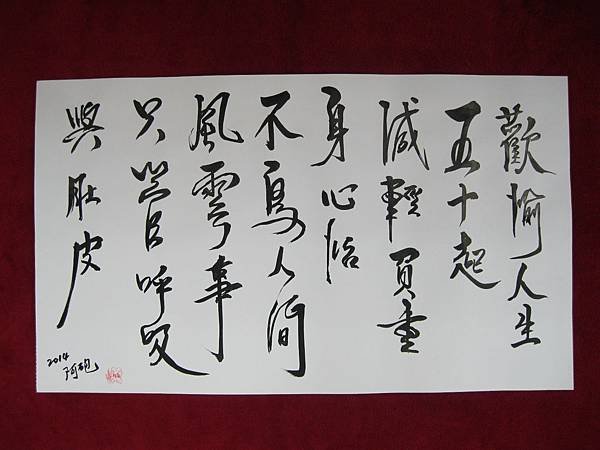 歡愉人生
五十起
減輕負重
身心怡
不為人間
風雲事
只管呼吸
與肚皮
2014
阿砲